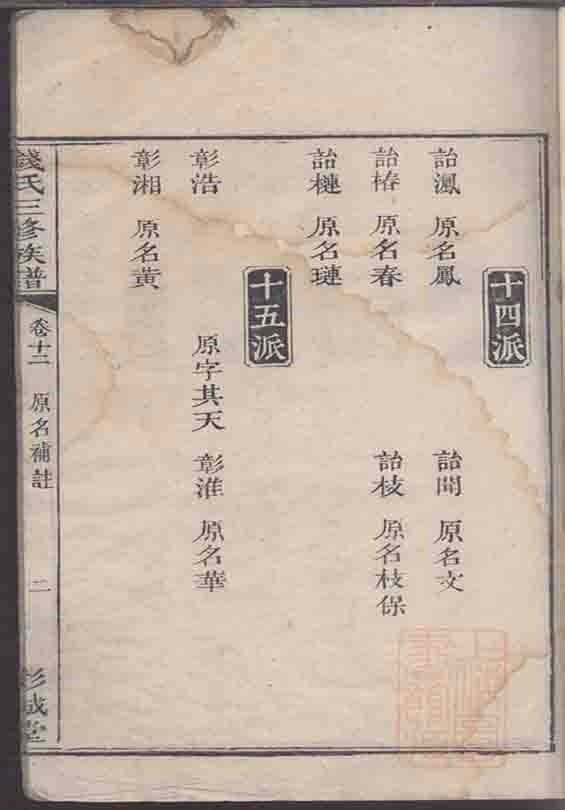 十四派
詒鳳 原名鳳 詒聞 原名文
詒椿 原名春 詒枝 原名枝保
詒槤 原名璉
十五派
彰浩 原字其天 彰淮 原名華
彰湘 原名黃
錢氏三修族譜 卷十二 原名補註 二 彭城堂